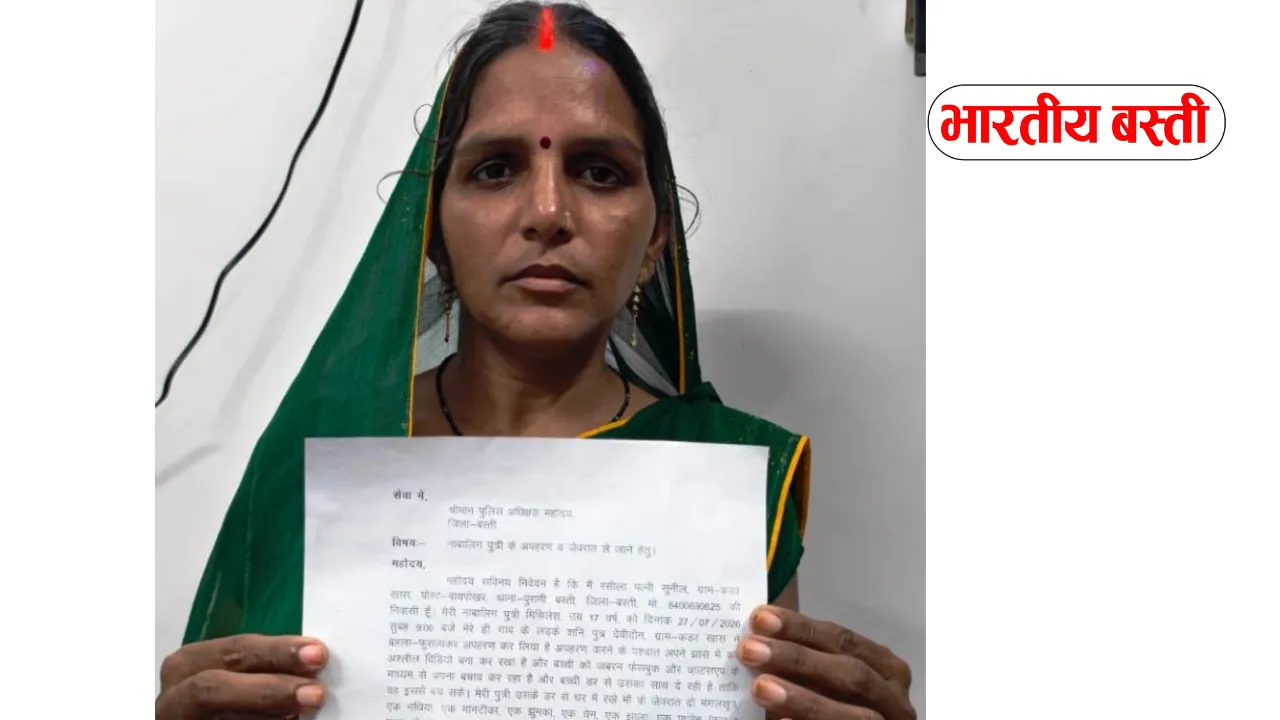 भारतीय बस्ती
सेवा में,
श्रीमान पुलिस अधिक्षक महोदय,
जिला–बस्ती
विषयः– नाबालिग पुत्री के अपहरण व जेवरात ले जाने हेतु।
महोदय,
महोदय सविनय निवेदन है कि मैं रसीला पत्नी सुनील, ग्राम–कडर
खास, पोस्ट– थाना–पुरानी बस्ती, जिला–बस्ती, मो. 8400690625 की
निवासी हूँ। मेरी नाबालिग पुत्री मिथिलेस, उम्र 17 वर्ष, को दिनांक 27/07/2026
सुबह 9:00 बजे मेरे ही गांव के लड़के शनि पुत्र देवीदीन, ग्राम–कडर खास ने
बहला–फुसलाकर अपहरण कर लिया है अपहरण करने के पश्चात अपने झासे में
अश्लील विडियो बना कर रखा है और बच्ची को जबरन फेसबुक और व्हाटसएफ के
माध्यम से अपना बचाव कर रहा है और बच्ची डर से उसका साथ दे रही है ताकि
वह इससे बच सके। मेरी पुत्री उसके डर से घर में रखे माँ के जेवरात दो मंगलसूत्र,
एक नथिया, एक मांगटीका, एक झुमका, एक चेन, एक झाला, एक